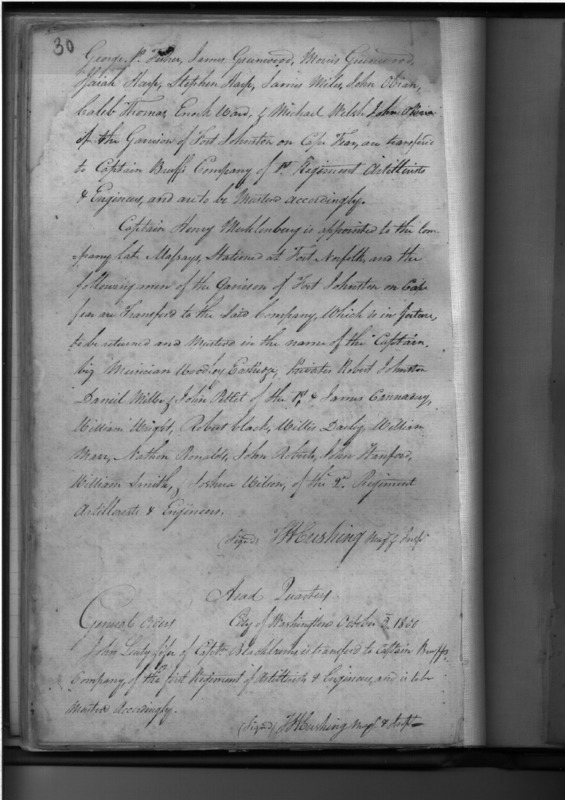 30
George Fisher, James Greenwood, Morris Greenwood,
Isaiah Harp, Stephen Harp, James Mills, John
Caleb Thomas, Enoch Ward, & Michael Welsh
of the Garrison of Fort Johnston on Cape Fear, are transferd
to Captain Bruffs Company of 1st Regiment Artillerists
& Engineers, and are to be Mustered accordingly.
Captain Henry Muhlenburg is appointed to the Com-
pany late Massays, Stationed at Fort Norfolk, and the
following men of the Garrison of Fort Johnston on Cape
fear are Transferd to the said Company, Which is in future,
to be returned and Mustered in the name of the Captain,
viz Musician Woodley Eastridge, Privates Robert Johnston
Daniel Miller & John Pettet of the 1st & James Cannaday,
William Wright, Robert Clark, Willis Daily, William
Marr, Nathan Ronalds, John Roberts, John Hanford,
William Smith, & Joshua Wilson, of the 2d. Regiment
Artillerists & Engineers.
(Signed) TH Cushing Insp
Head Quarters
General Orders City of Washington October 3 1800
John fifer of Captn. Blackburns is transferd to Captain Bruffs
Company, of the first Regiment of Artillerists & Engineers, and is to be
Mustered Accordingly.
(Signed) TH Cushing Majr & Inspr